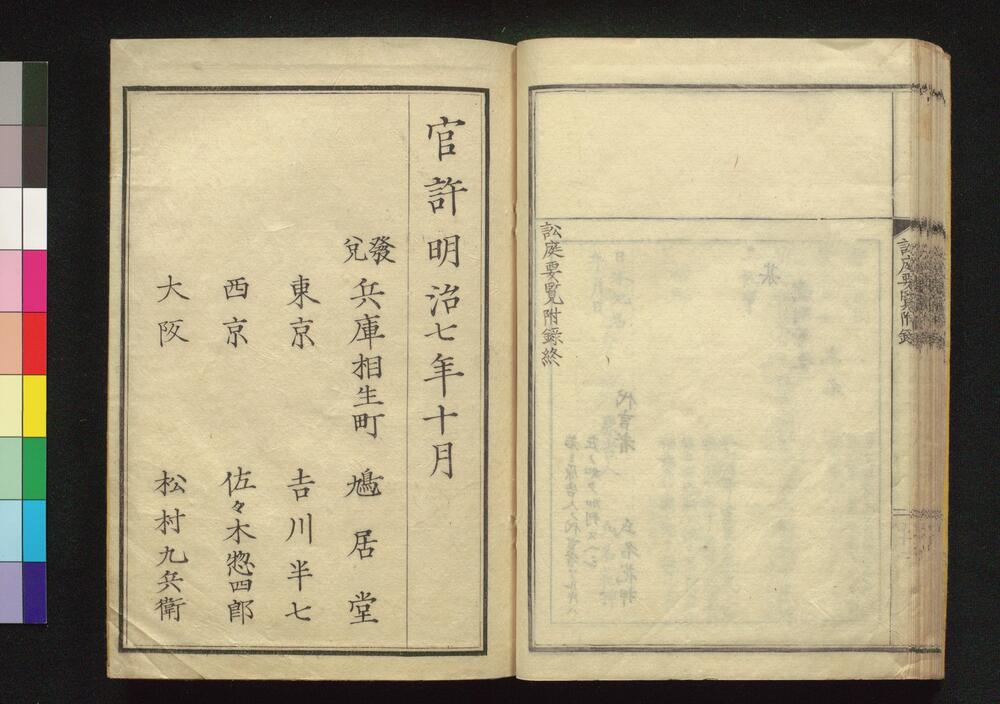 訟庭要覧附録
訟庭要覧附録終
官許明治七年十月
發兌
兵庫相生町 鳩居堂
東京 吉川半七
西京 佐々木惣四郎
大阪 松村九兵衛